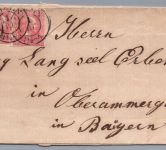 Herrn
g Lang seel Erben
in
Oberammerg
in Bayern